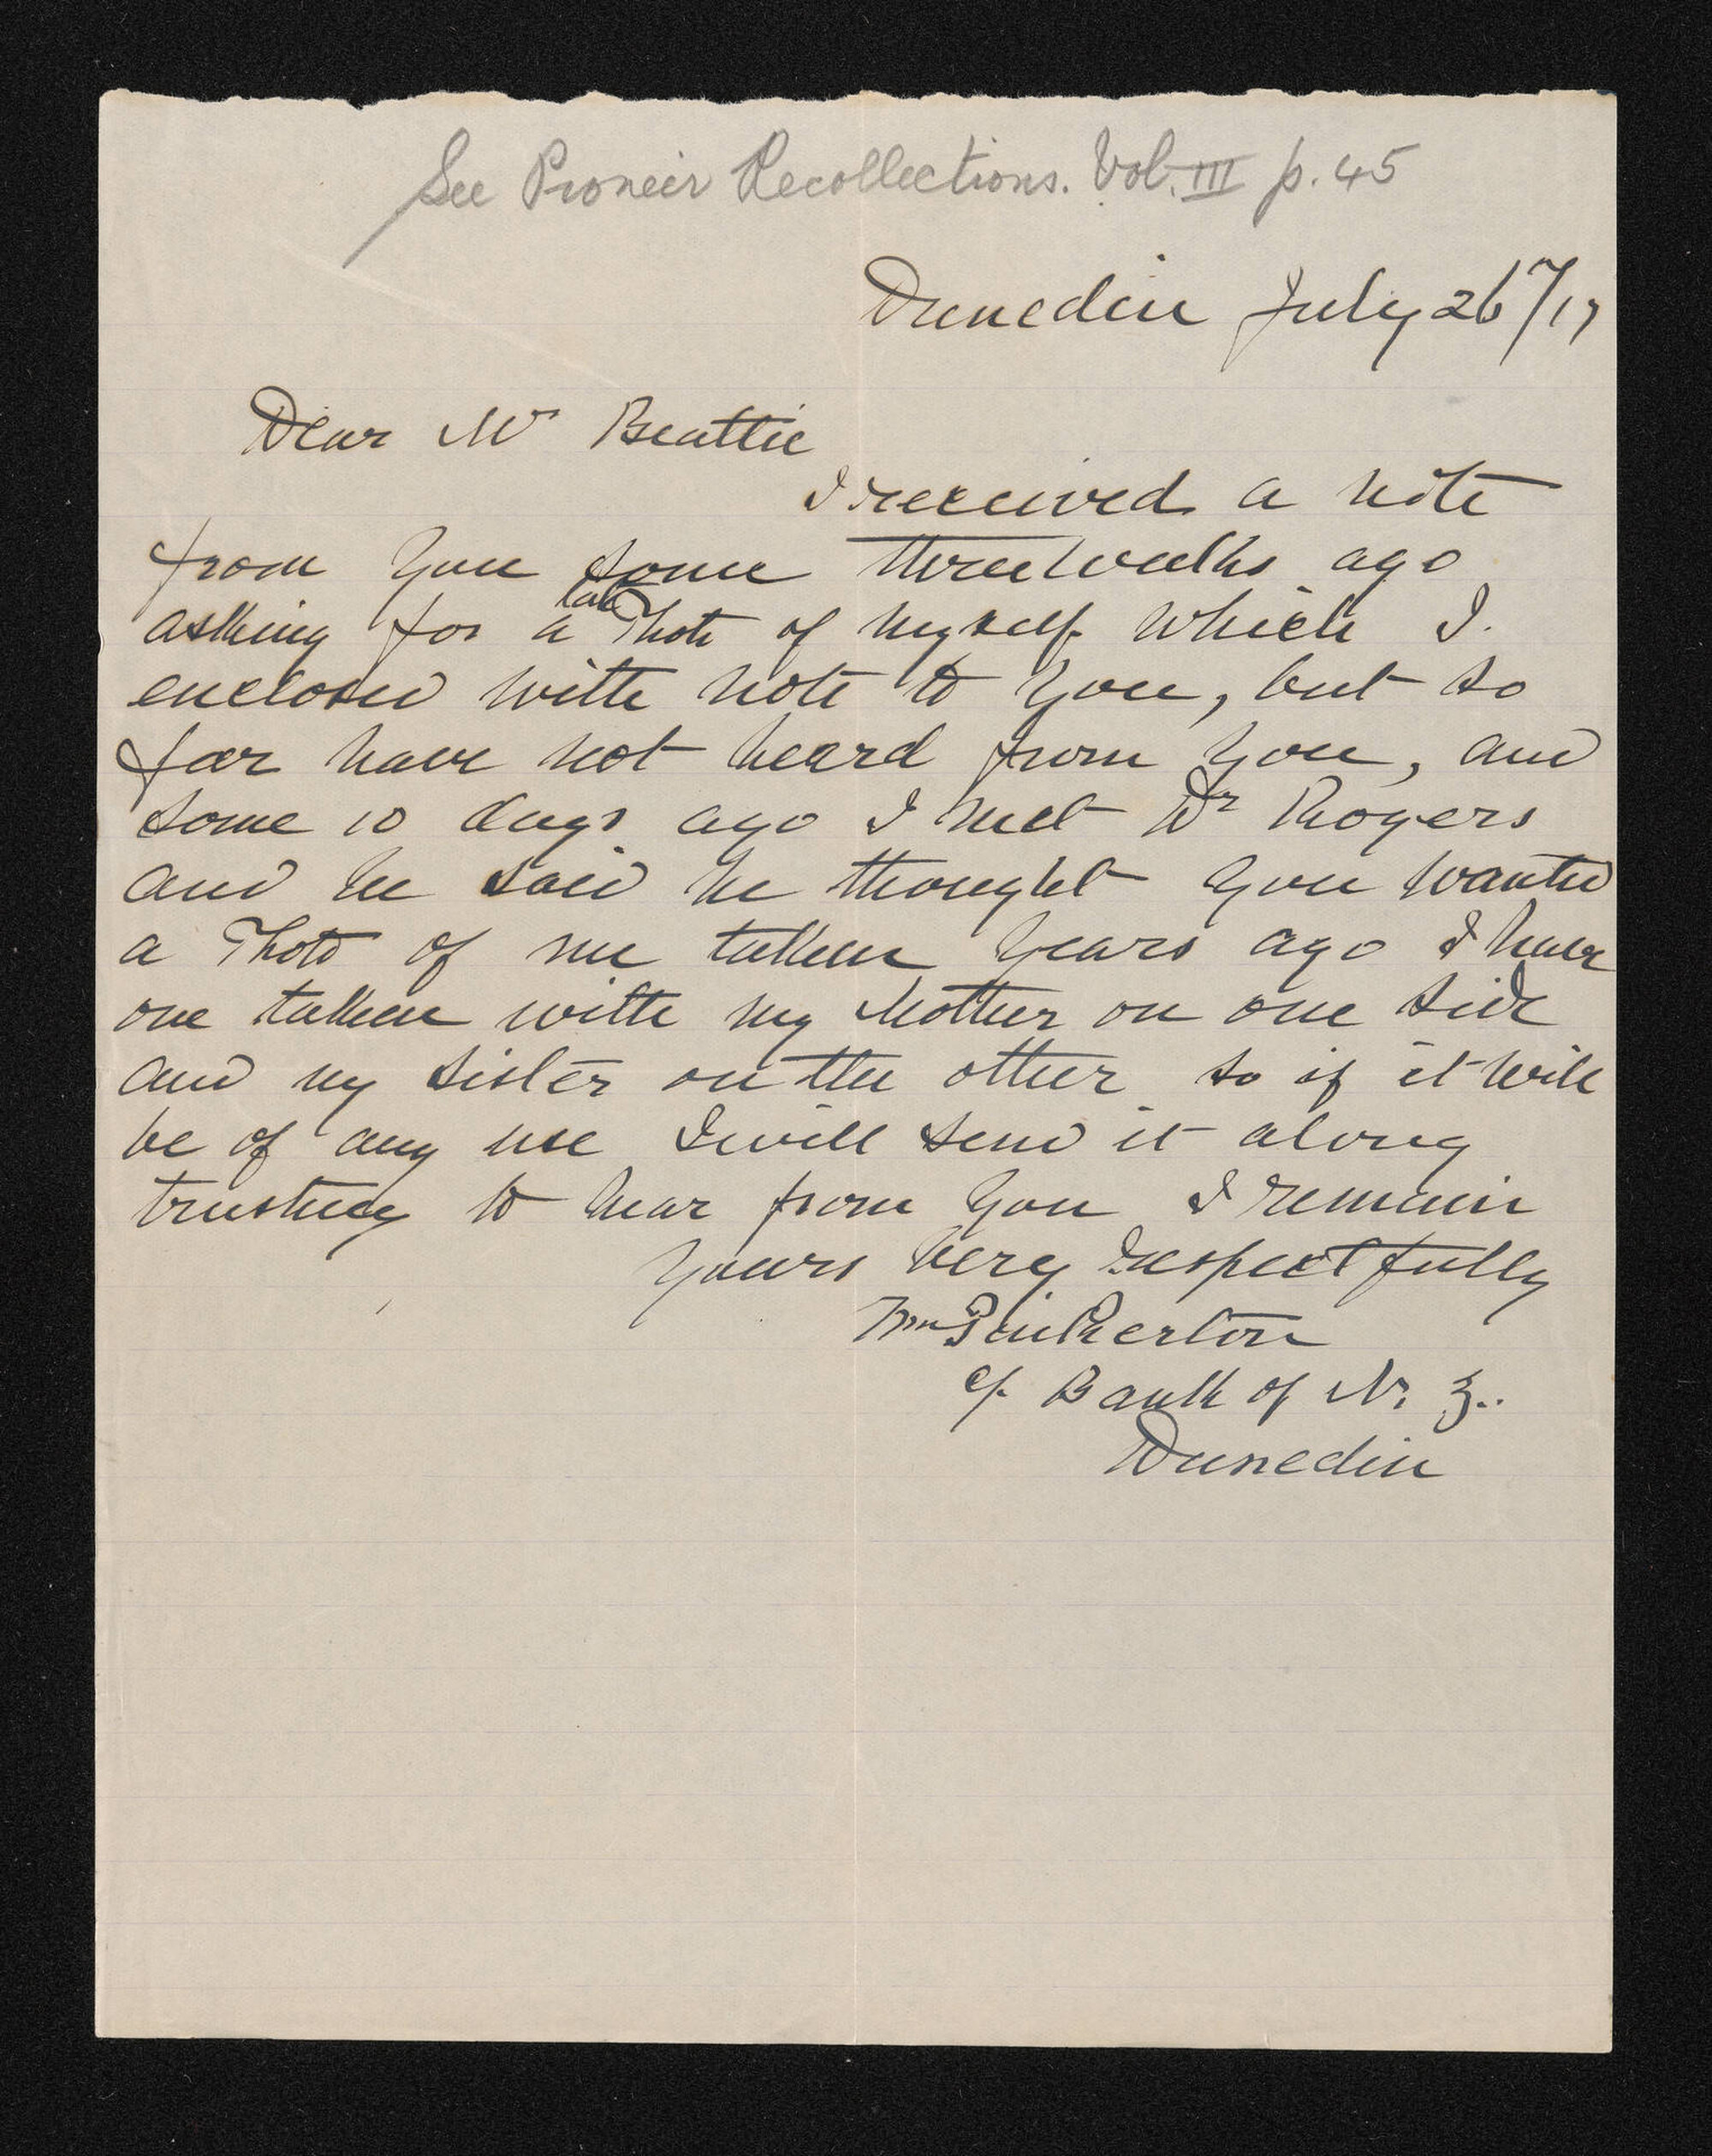 See Pioneer Recollections. Vol. III p. 45
Dunedin July 26th/17
Dear Mr Beattie
I received a note
from you some three weeks ago
asking for a late Photo of myself which I
enclosed with note to you, but so
far have not heard from you, and
some 10 days ago I met Dr Rogers
and he said he thought you wanted
a Photo of me taken years ago I have
one taken with my Mother on one side
and my sister on the other so if it will
be of any use I will send it along
trusting to hear from you I remain
Yours very respectfully
Wm Pinkerton
c/. Bank of N. Z..
Dunedin